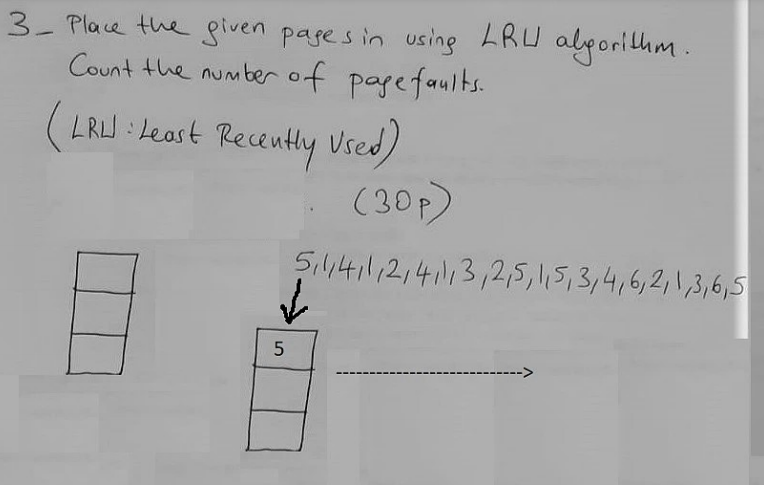 3- Place the given pages in using LRU algorithm.
Count the number of page faults.
(LRU: Least Recently Used)
(30p)
5,1,4,1,2,4,1,3,2,5,1,5,3,4,6,2,1,3,6,5
5